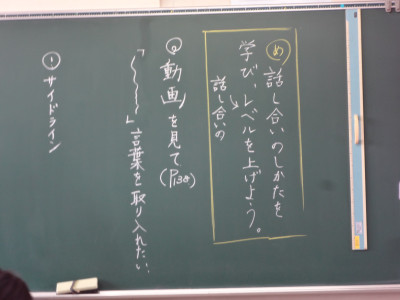 め 話し合いのしかたを
学び、レベルを上げよう。
話し合いの
◎動画を見て(P138)
「〜〜〜」言葉を取り入れたい。
① サイドライン